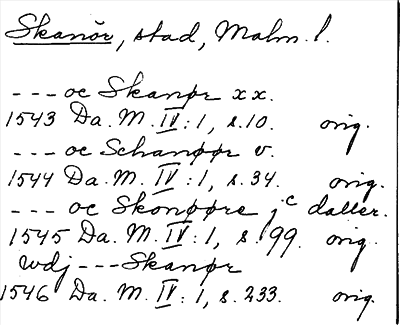 Skanör, stad, Malm. l.
--- oc Skanør xx.
1543 Da. M. IV: 1, s. 10. orig.
--- oc Schanøør v.
1544 Da. M. IV: 1, s. 34. orig.
--- oc Skonøøre jc daller.
1545 Da. M. IV: 1, s 99. orig.
wdj --- Skanør
1546 Da. M. IV: 1, s. 233. orig.